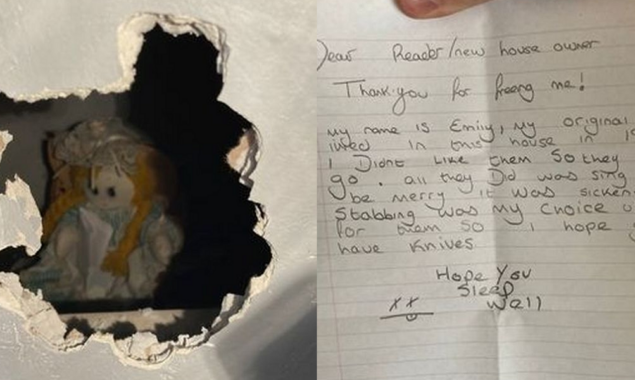 Dear Reader/new house owner
Thankyou for freeing me!
my name is Emily, my original
lived in this house in
I Didnt Like them So they
go. all they Did was sing
be merry it was sicken
Stabbing was my choice
for them So I hope
have Knives
Hope You
Sleep
Well
xx